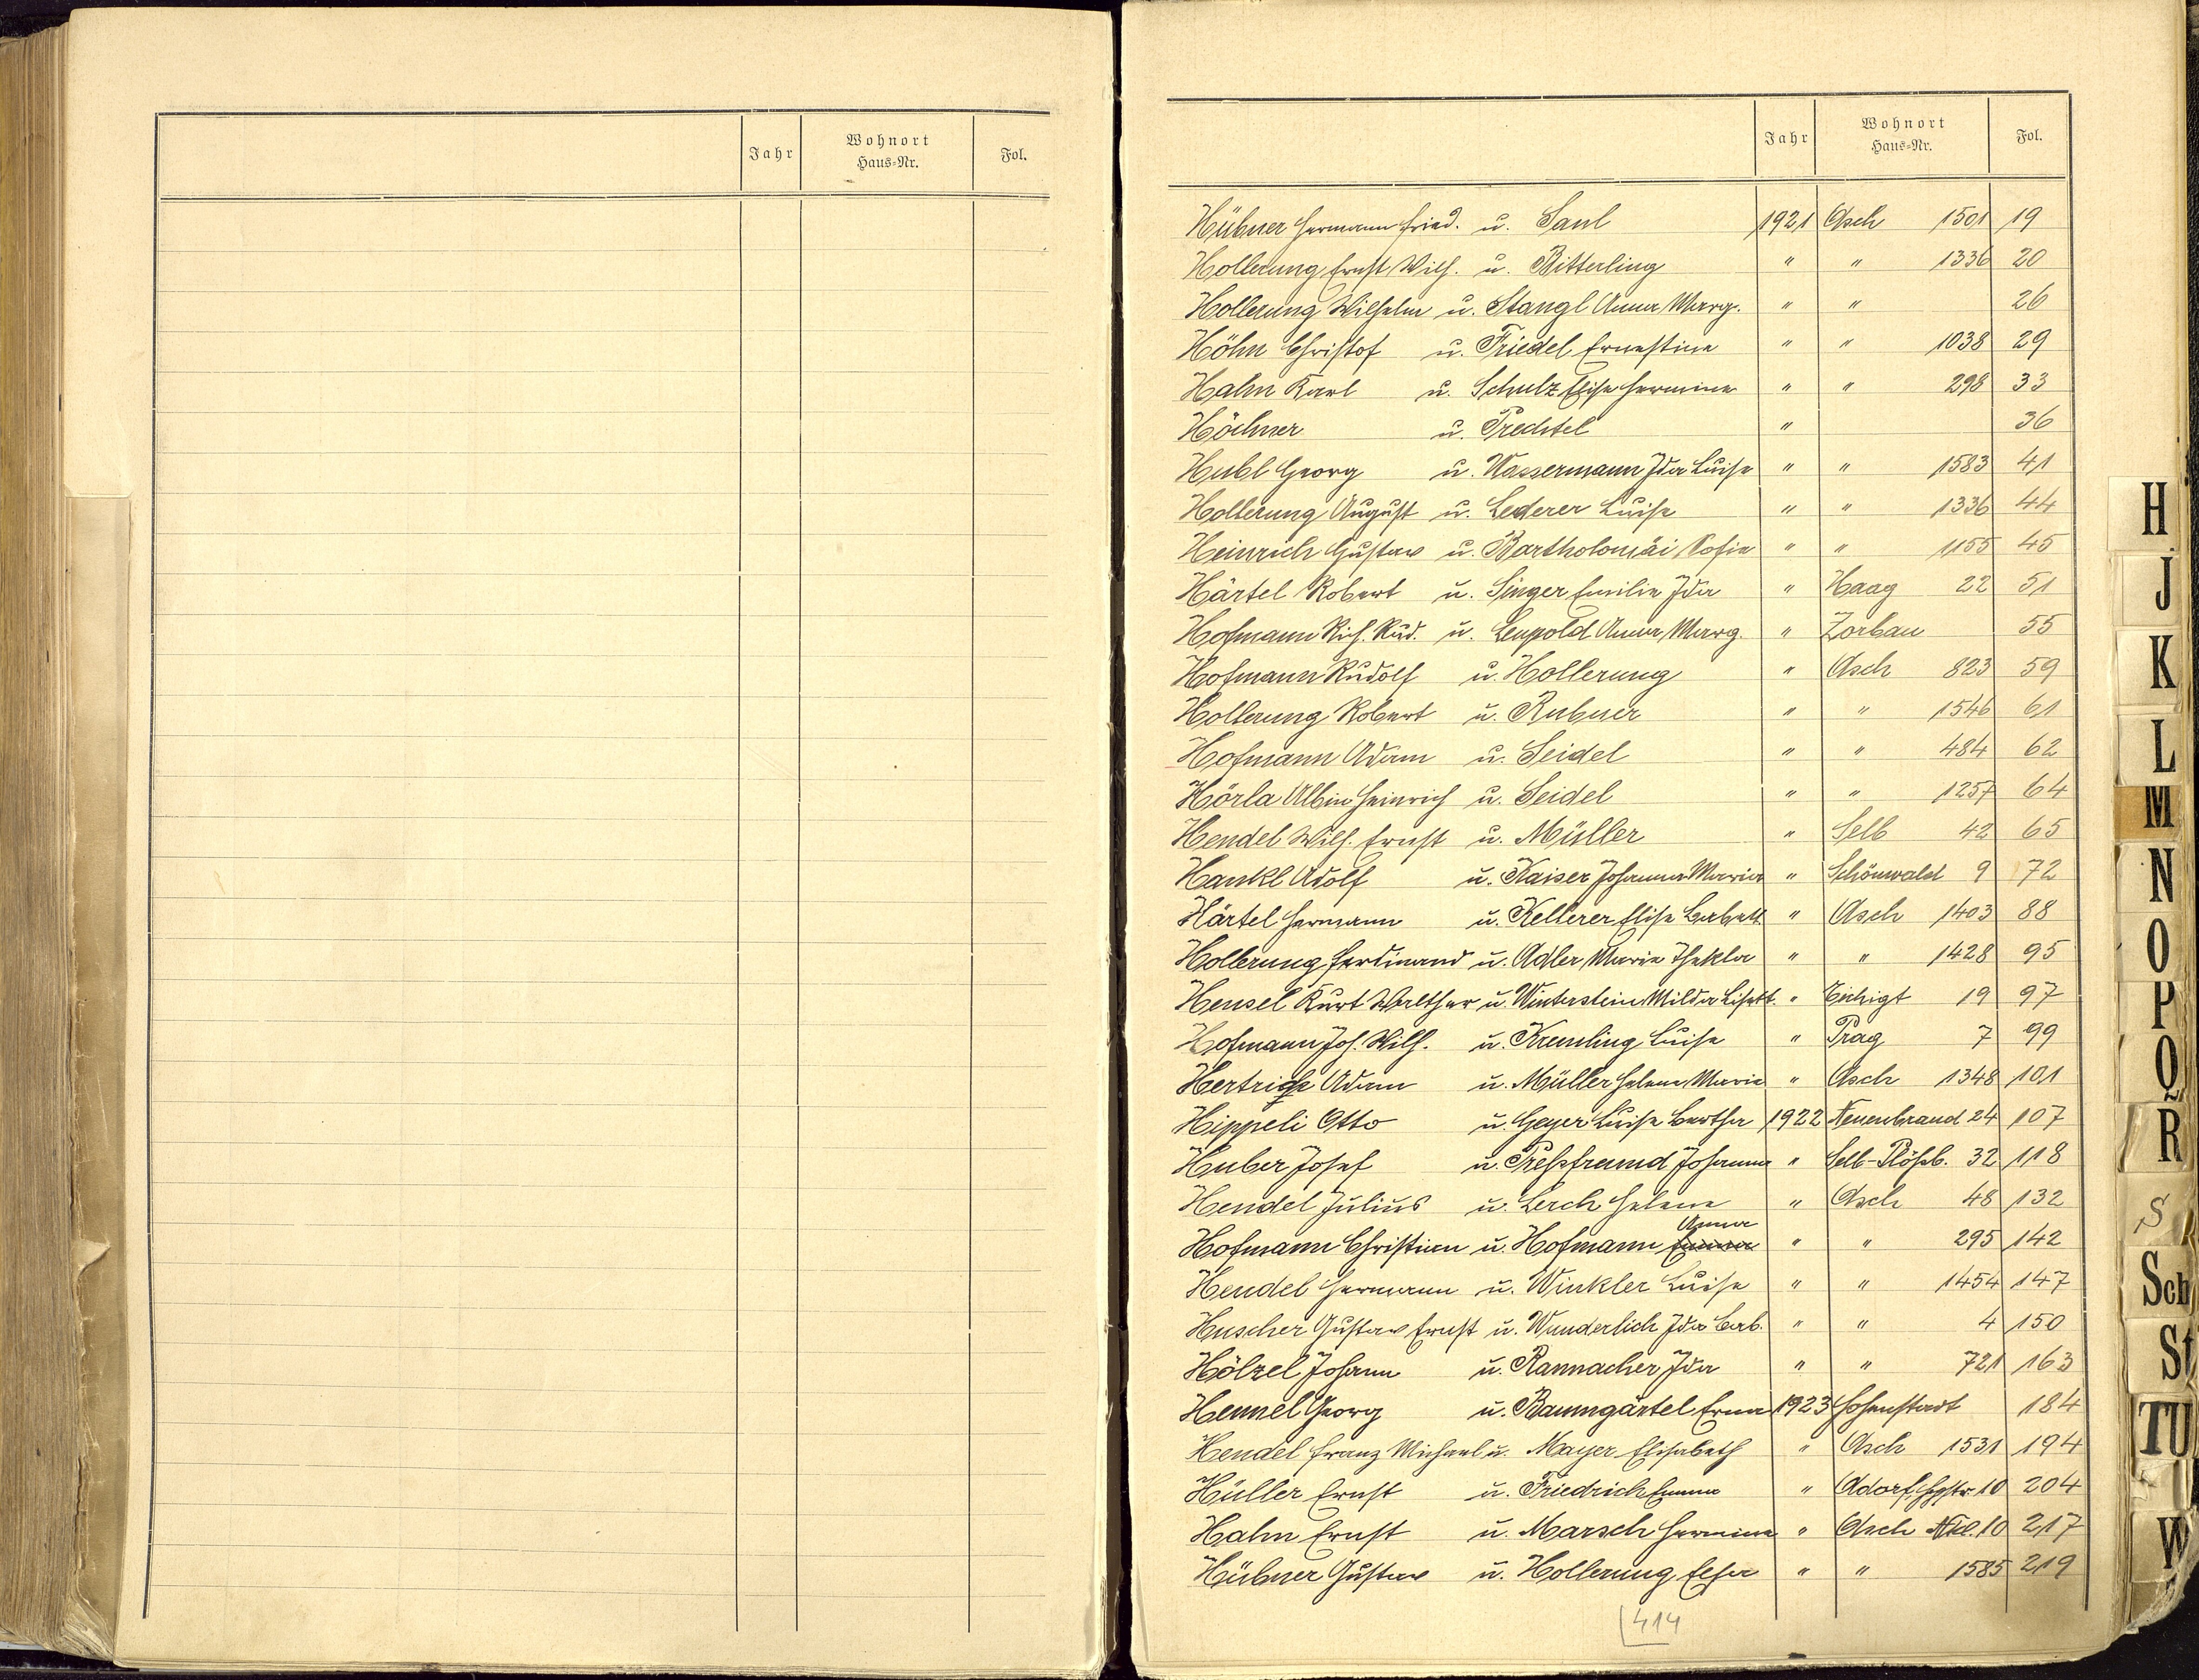 Jahr Wohnort Haus-Nr. Fol.
Jahr Wohnort Haus-Nr. Fol.
Hübner Hermann Fried. u. Saul 1921 Asch 1501 19
Hollerung Ernst Wilh. u. Bitterling " " 1336 20
Hollerung Wilhelm u. Stangl Anna Marg. " " 26
Höhn Christof u. Friedel Ernestine " " 1038 29
Hahn Karl u. Schulz Elise Hermine " " 298 33
Höchner u. Prechtel " 36
Hubl Georg u. Wassermann Ida Luise " " 1583 41
Hollerung August u. Lederer Luise " " 1336 44
Heinrich Gustav u. Bartholomäi Sofie " " 1155 45
Härtel Robert u. Singer Emilie Ida " Haag 22 51
Hofmann Rich. Rud. u. Leupold Anna Marg. " Zorbau 55
Hofmann Rudolf u. Hollerung " Asch 823 59
Hollerung Robert u. Rubner " " 1546 61
Hofmann Adam u. Seidel " " 484 62
Hörla Albin Heinrich u. Seidel " " 1257 64
Hendel Wilh. Ernst u. Müller " Selb 42 65
Hankl Adolf u. Kaiser Johanna Maria " Schönwald 9 72
Härtel Hermann u. Kellerer Elise Babett " Asch 1403 88
Hollerung Ferdinand u. Adler Marie Thekla " " 1428 95
Hensel Kurt Walther u. Winterstein Milda Lisett. " Eichigt 19 97
Hofmann Joh. Wilh. u. Kremling Luise " Prag 7 99
Adam u. Müller Helene Marie " Asch 1348 101
Hippeli Otto u. Geyer Luise Bertha 1922 Neuenbrand 24 107
Huber Josef u. Preßfreund Johanna " Selb-Plößb. 32 118
Hendel Julius u. Lerch Helene " Asch 48 132
Hofmann Christian u. Hofmann Emma Anna " " 295 142
Hendel Hermann u. Winkler Luise " " 1454 147
Huscher Gustav Ernst u. Wunderlich Ida Bab. " " 4 150
Hölzel Johann u. Rannacher Ida " " 721 163
Hennel Georg u. Baumgärtel Erna 1923 Hohenstadt 184
Hendel Franz Michael u. Mayer Elisabeth " Asch 1531 194
Hüller Ernst u. Friedrich Emma " Adorf 10 204
Hahn Ernst u. Marsch Hermine " Asch 10 217
Hübner Gustav u. Hollerung Elsa " " 1585 219
414
H
J
K
L
M
N
O
P
Q
R
S
Sch
St
TU
W